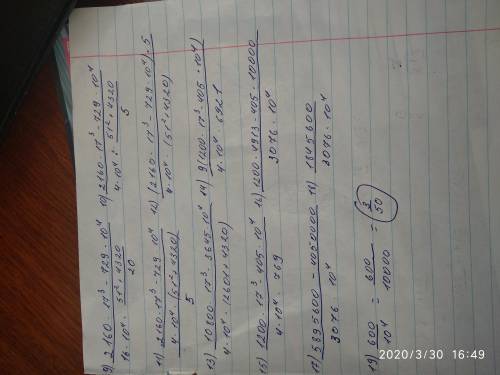 9) (2160 · 17³ - 729 · 10⁴) / (16 · 10⁴ · (51² + 4320) / 20) 10) (2160 · 17³ - 729 · 10⁴) / (4 · 10⁴ · (51² + 4320) / 5)
11) (2160 · 17³ - 729 · 10⁴) / (4 · 10⁴ (51² + 4320) / 5) 12) (2160 · 17³ - 729 · 10⁴) · 5 / (4 · 10⁴ · (51² + 4320))
13) (10800 · 17³ - 3645 · 10⁴) / (4 · 10⁴ · (2601 + 4320)) 14) 9(1200 · 17³ - 405 · 10⁴) / (4 · 10⁴ · 6921)
15) (1200 · 17³ - 405 · 10⁴) / (4 · 10⁴ · 769) 16) (1200 · 4913 - 405 · 10000) / (3076 · 10⁴)
17) (5895600 - 4050000) / (3076 · 10⁴) 18) 1845600 / (3076 · 10⁴)
19) 600 / 10⁴ = 600 / 10000 = 3 / 50
2020/3/30 16:49